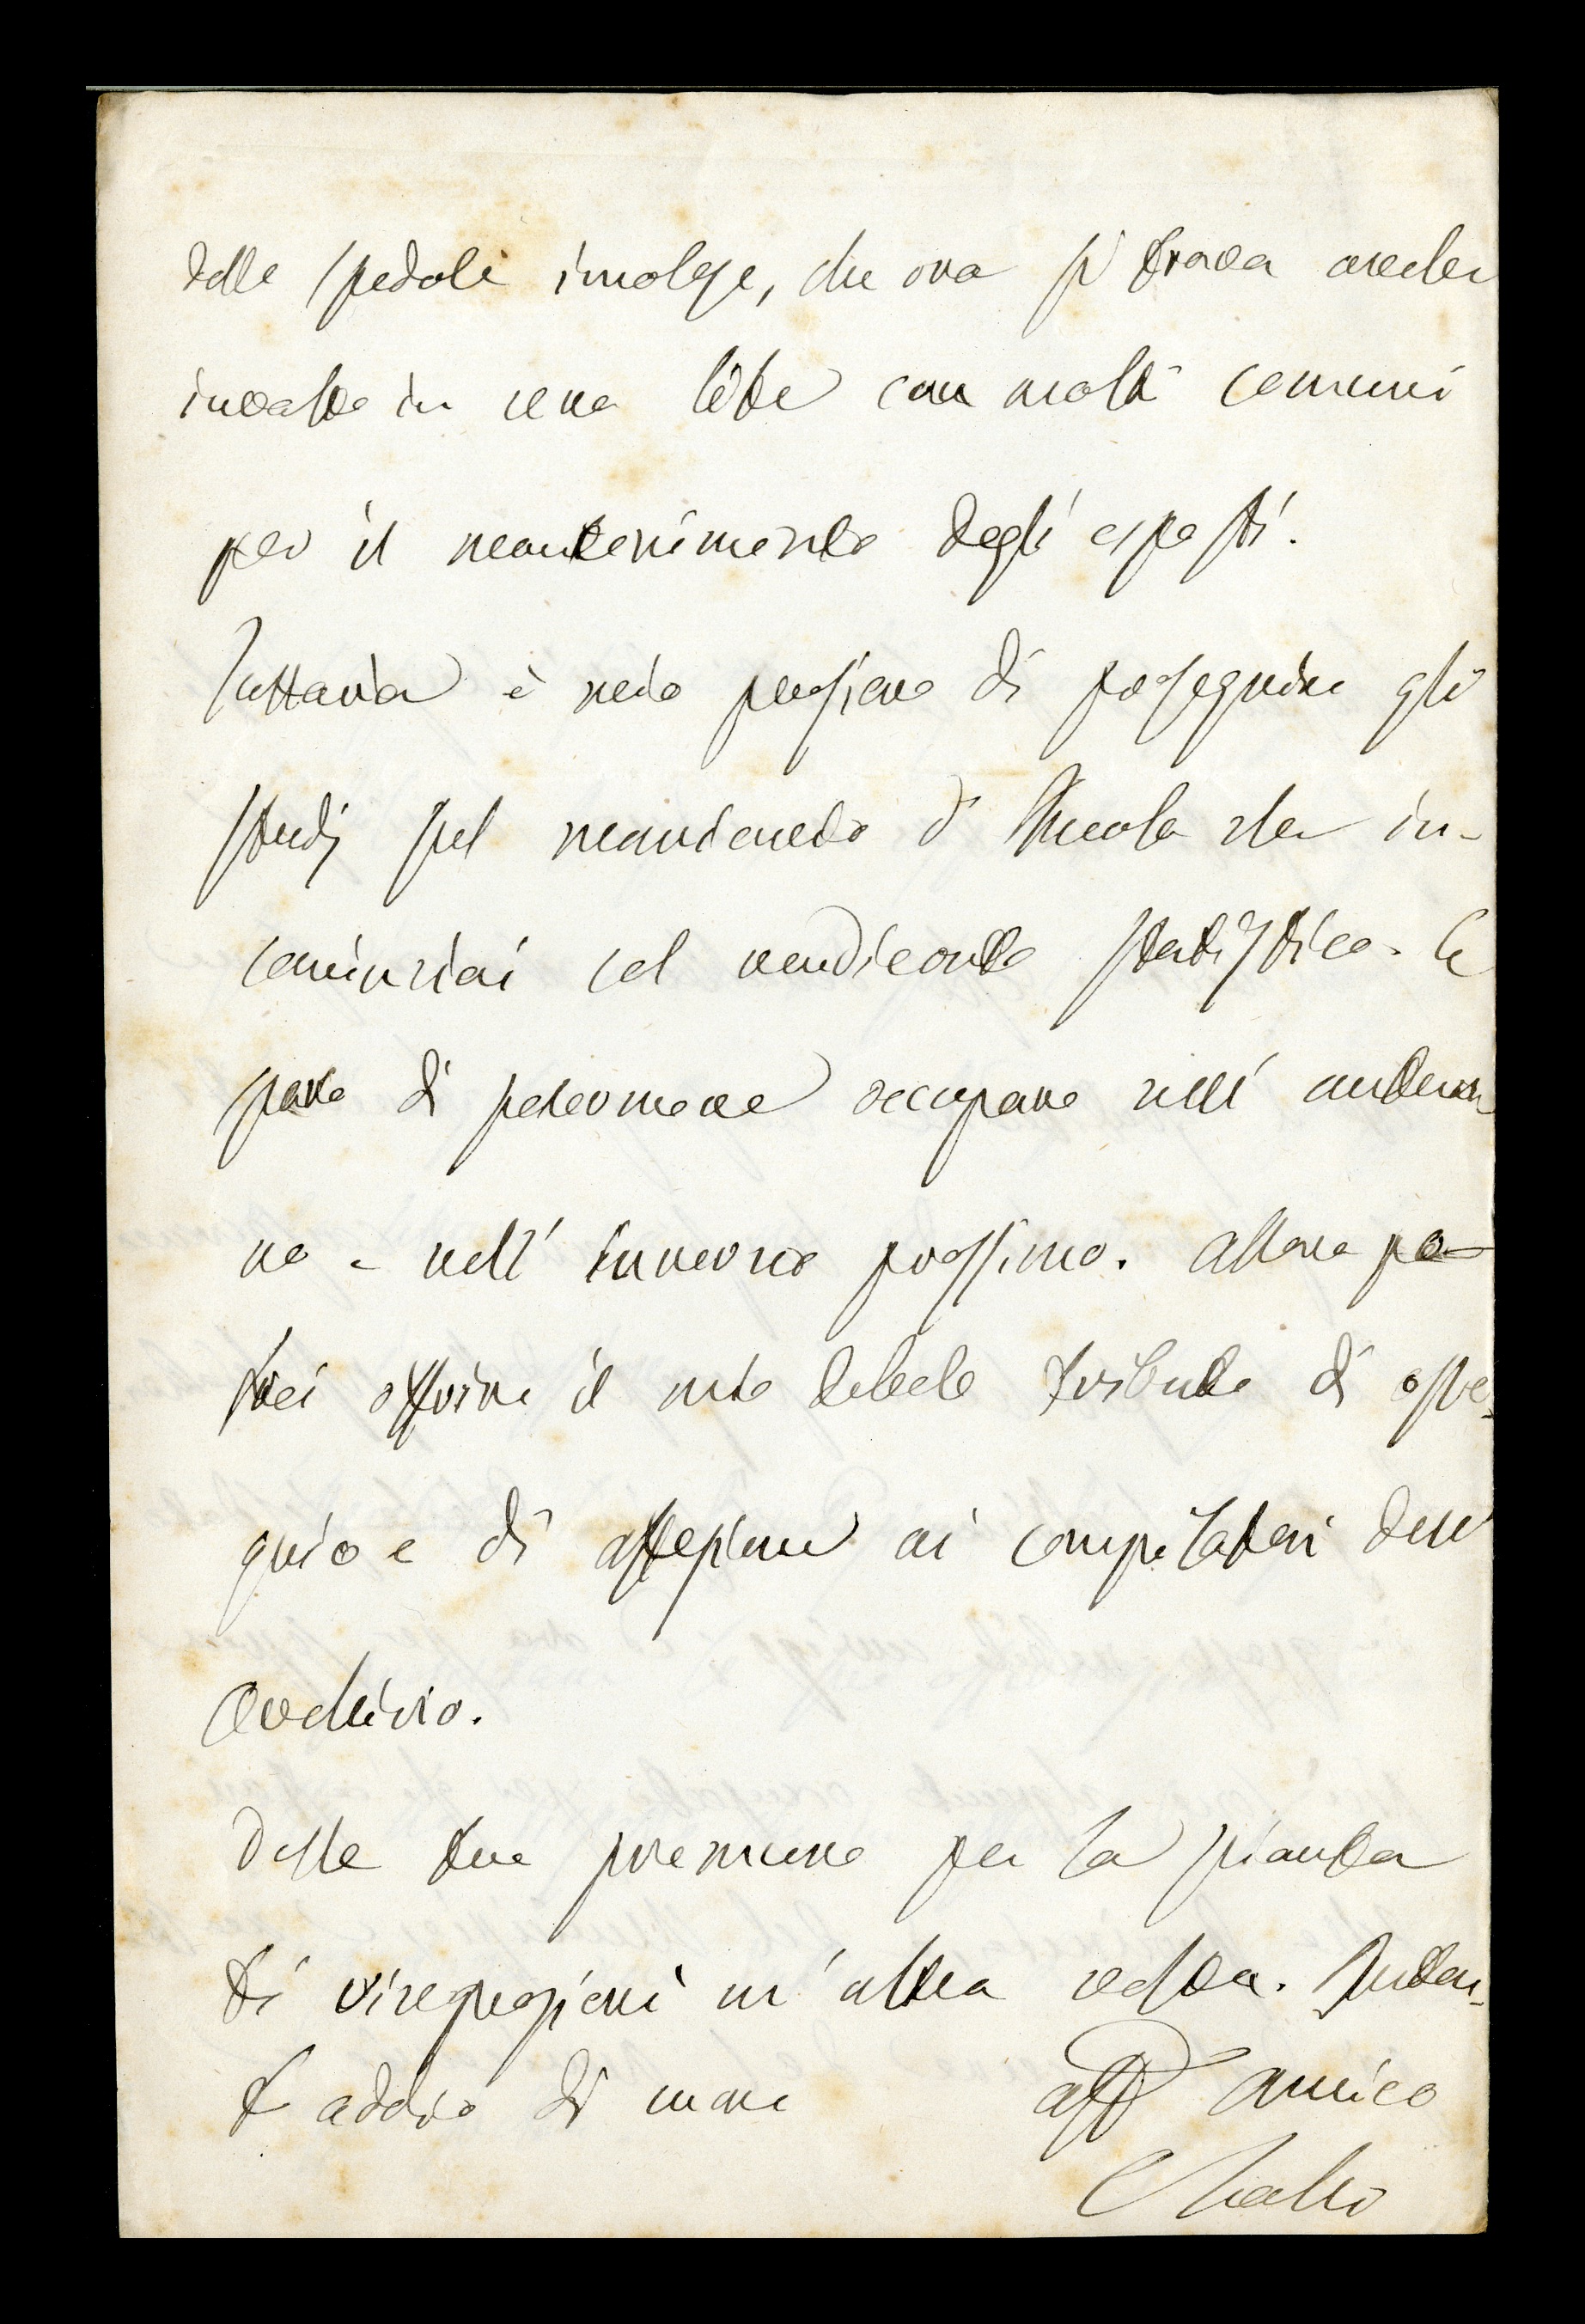 dello spedale imolese, che ora si trova anche
involto in una lite con molti comuni
per il mantenimento degli esposti.
Tuttavia è mio pensiero di proseguire gli
studj sul manicomio d'Imola che in-
cominciai col rendiconto statistico. Le
spero di potermene occupare nell' autun
no e nell' inverno prossimo. Allora po-
trei offrire il mio debole tributo di osse-
quio e di affezione ai compilatori dell'
Archivio.
Delle tue premure per la pianta
ti ringrazierò un' altra volta. Intan-
to addio di cuore aff amico